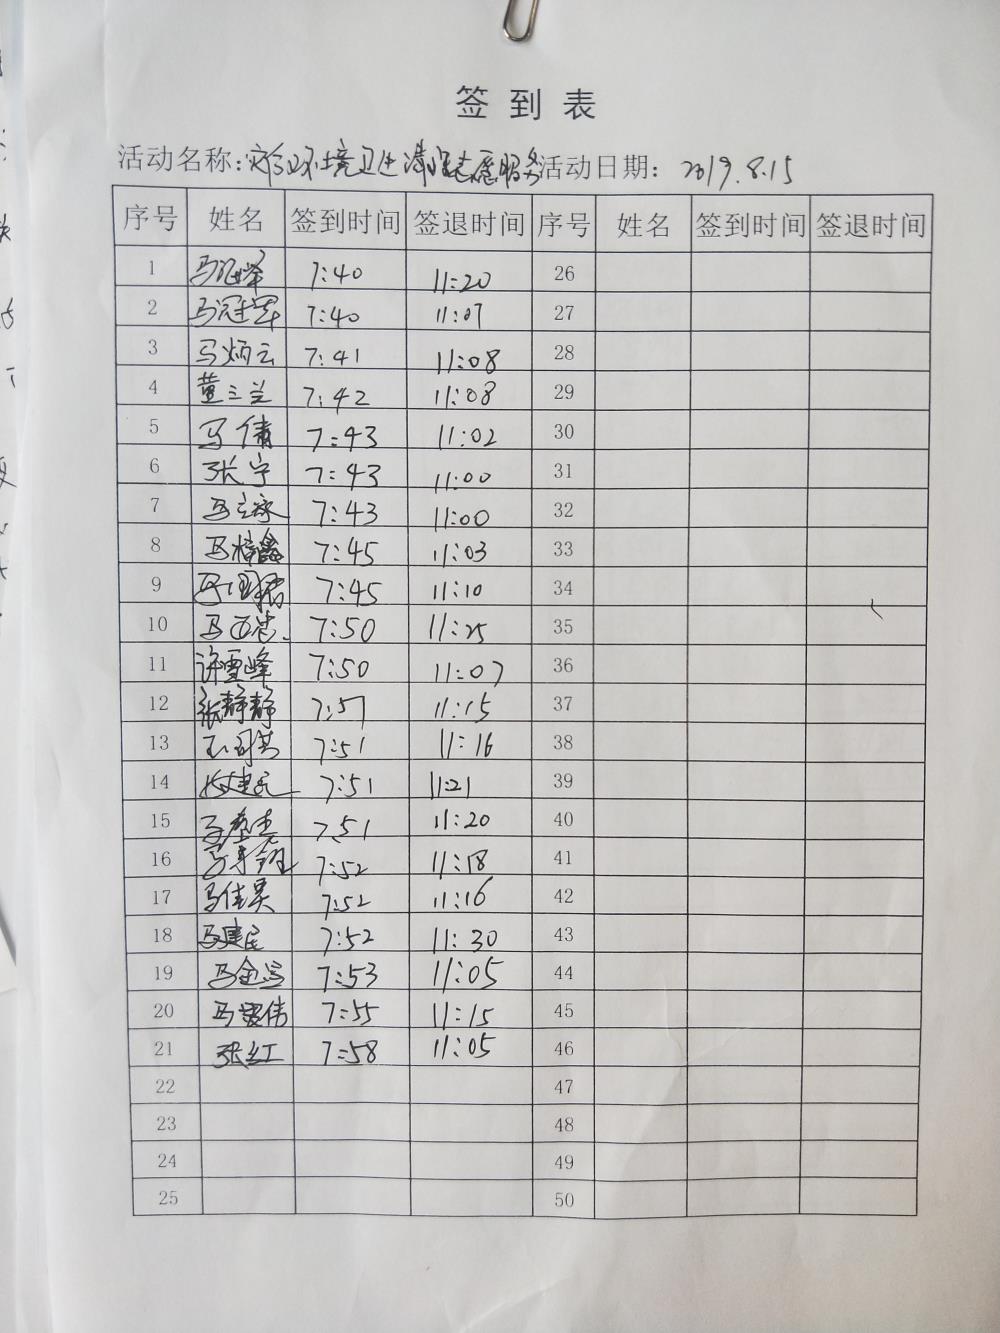 签到表
活动名称: 环境卫生清理志愿服务 活动日期: 2019.8.15
序号 姓名 签到时间 签退时间 序号 姓名 签到时间 签退时间
1 马 峰 7:40 11:20 26
2 马冠军 7:40 11:07 27
3 马炳云 7:41 11:08 28
4 董三兰 7:42 11:08 29
5 马倩 7:43 11:02 30
6 张宁 7:43 11:00 31
7 马 7:43 11:00 32
8 马梓鑫 7:45 11:03 33
9 马 7:45 11:10 34
10 马西忠 7:50 11:25 35
11 许雪峰 7:50 11:07 36
12 张静静 7:51 11:15 37
13 7:51 11:16 38
14 7:51 11:21 39
15 马 7:51 11:20 40
16 马 7:52 11:18 41
17 马佳昊 7:52 11:16 42
18 马建民 7:52 11:30 43
19 马金 7:53 11:05 44
20 马 伟 7:55 11:15 45
21 张红 7:58 11:05 46
22 47
23 48
24 49
25 50